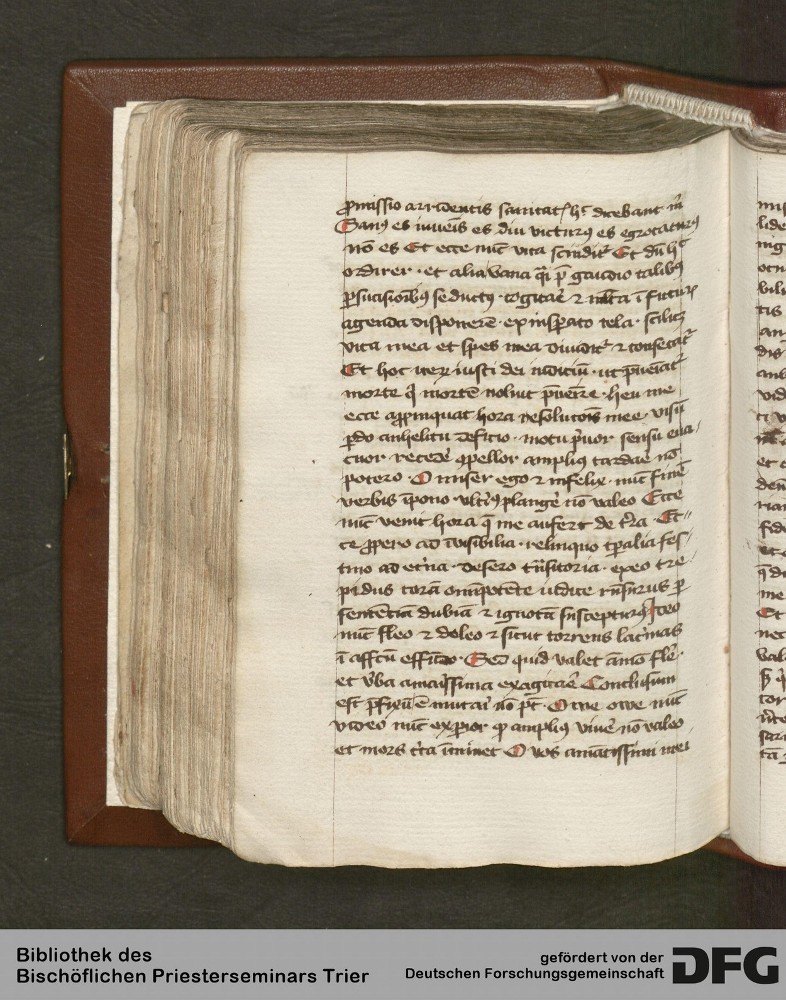 promissio arridentis sanitat' hec dicebant m̄
Sanus es iuuenis es diu victurus es egrotaturus
nō es Et ecce nūc vita scindit' Et dū hec
ordirer · et alia vana quasi pre gaudio talibus
persuasionibus seductus · cogitare et multa ī futurum
agenda disponere · ex insperato tela · scilicet
vita mea et spes mea diuidit' et consecatur
Et hoc iusti dei iudiciū · ut
morte qui mortē noluit preuenire · heu me
ecce appropinquat hora resolucionis mee · visū
perdo anhelitu deficio · motu priuor sensu eua/
cuor · recedere compellor amplius tardare nō
potero · O miser ego et infelix · nūc finē
verbis īpono · vlterius plangere nō valeo Ecce
nūc venit hora que me aufert de terra · Ec"
ce propero ad īvisibilia · relinquo temporalia fes/
tino ad eterna · desero transitoria · exeo tre/
pidus corā omnipotēte iudice ... per
sentenciā dubiā et ignotā suscepturus Ideo
nūc fleo et doleo et sicut torrens lacrimas
ī affectū effundo · Sed quid valet amodo flere ·
et verba amarissima exagitare Conclusum
est prefixū ē mutari nō potest · Owe owe nūc
video nūc experior quod amplius viuere nō valeo
et mors certa īminet O vos amātissimi mei
Bibliothek des
Bischöflichen Priesterseminars Trier
gefördert von der
Deutschen Forschungsgemeinschaft
DFG